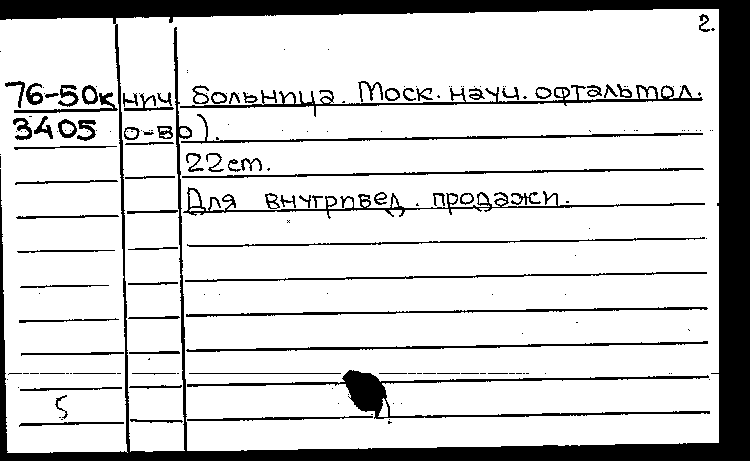 2.
76-50к нич. больница. Моск. науч. офтальмол.
3405 о-во).
22 cm.
Для внутривед. продажи.
5